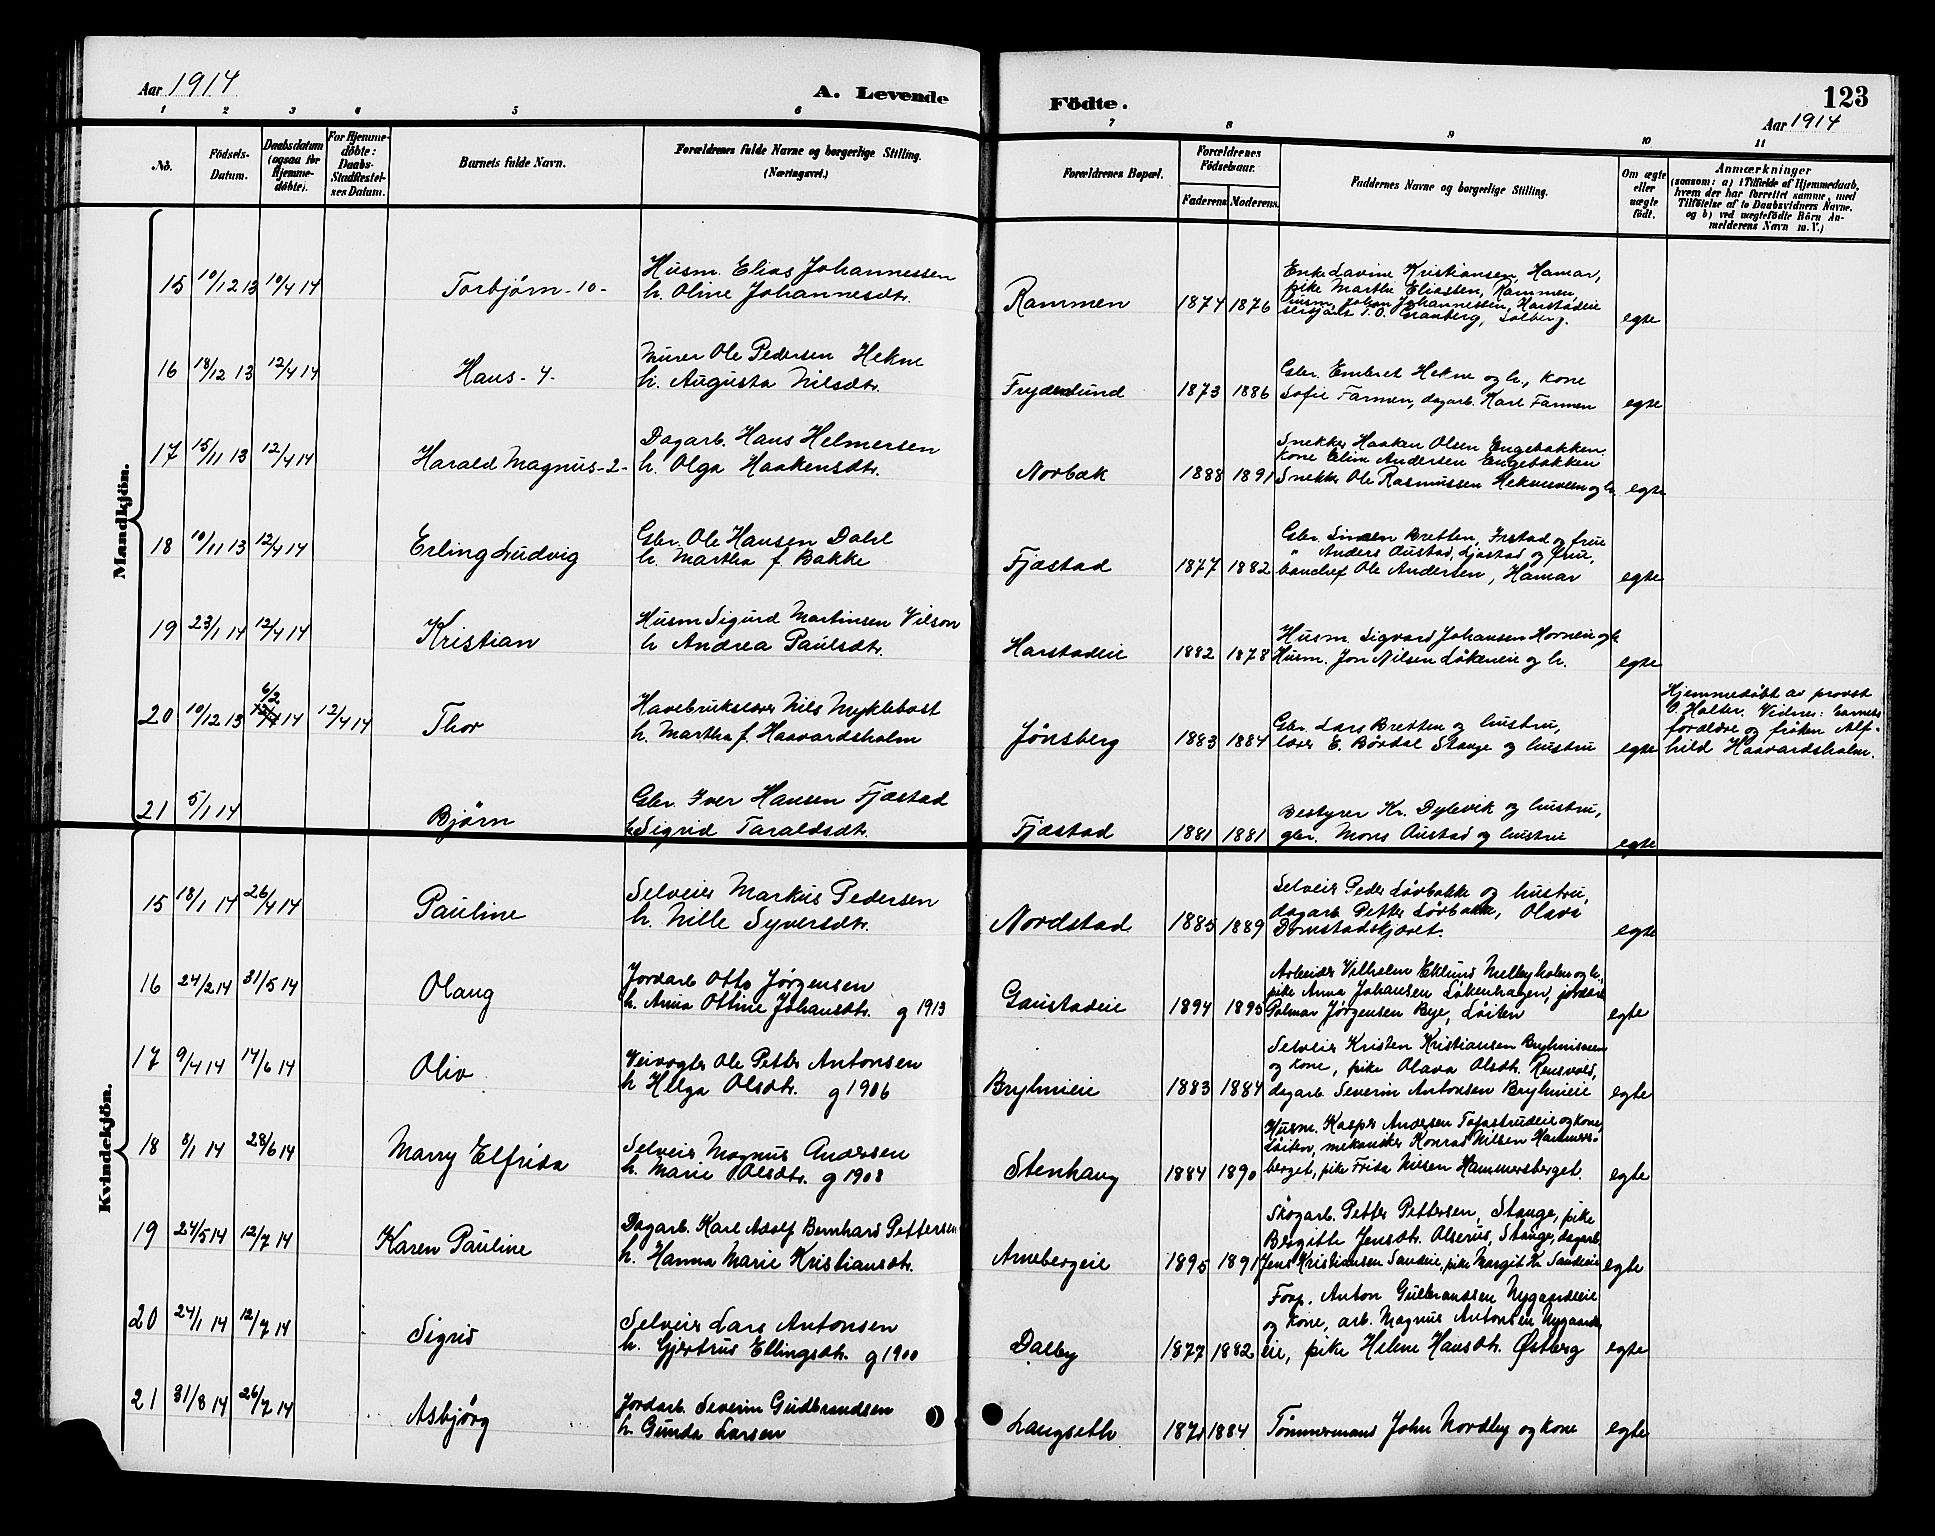 Aar 1914
A. Levende
Födte.
123
Aar 1914
1 2 3 4 5 6 7 8 9 10 11
No.
Födsels-
Datum.
Daabsdatum
(ogsaa for
Hjemme-
döbte).
For Hjemme-
döbte:
Daabs-
Stadfæstel-
ses Datum.
Barnets fulde Navn.
Forældrenes fulde Navne og borgerlige Stilling.
(Næringsvei.)
Forældrenes Bopæl.
Forældrenes
Födselsaar.
Faderens Moderens.
Faddernes Navne og borgerlige Stilling.
Om ægte
eller
uægte
födt.
Anmærkninger
(saasom: a) i Tilfælde af Hjemmedaab,
hvem der har forrettet samme, med
Tilföielse af to Daabsvidners Navne.
og b) ved uægtefödte Börn An-
melderens Navn m. V.)
Mandkjön.
15 10/12 13 10/4 14 Torbjørn - 10 -
Husm. Elias Johannessen
h. Oline Johannesdtr.
Rammen 1874 1876
Enke Lavine Kristiansen, Hamar,
pike Marthe Eliassen, Rammen,
husm. Johan Johannessen, Harstadeie
sersjant T. O. Granberg, Solberg.
egte
16 18/12 13 12/4 14 Hans - 4 -
Murer Ole Pedersen Hekne
h. Augusta Nilsdtr.
Frydenlund 1873 1886
Gbr. Embret Hekne og h., kone
Sofie Farmen, dagarb. Karl Farmen
egte
17 15/11 13 12/4 14 Harald Magnus - 2 -
Dagarb. Hans Helmersen
h. Olga Haakensdtr.
Norbæk 1888 1891
Snekker Haaken Olsen Engebakken
kone Eline Andersen Engebakken
Snekker Ole Rasmussen Heknesveen og h.
egte
18 10/11 13 12/4 14 Erling Ludvig
Gbr. Ole Hansen Dahl
h. Martha f. Bakke
Fjæstad 1877 1882
Gbr. Simen Bretten, Frstad og frue
" Anders Austad, Ljøstad og frue,
Ole Andersen, Hamar
egte
19 23/1 14 12/4 14 Kristian
Husm Sigurd Martinsen Vilson
h Andrea Paulsdtr.
Harstadeie 1882 1878
Husm. Sigvard Johansen Horneie og h.
Husm. Jon Nilsen Løkeneie og h.
egte
20 10/12 13 6/2 14 12/4 14 Thor
Havebrukslærer Nils Myklebost
h. Martha f. Haavardsholm
Jønsberg 1883 1884
Gbr. Lars Bretten og hustru,
lærer E. Børdal Stange og hustru
egte
Hjemmedøbt av provst
O. Halter. Vidner: barnets
forældre og frøken Alf-
hild Haavardsholm.
21 5/1 14 Bjørn
Gbr. Iver Hansen Fjæstad
h. Sigrid Taraldsdtr.
Fjæstad 1881 1881
Bestyrer Kr. Dylevik og hustru,
gbr. Mons Austad og hustru
egte
Kvindekjön.
15 18/1 14 26/4 14 Pauline
Selveier Markus Pedersen
h. Nille Syversdtr.
Nordstad 1885 1889
Selveier Peder Løvbakke og hustru,
dagarb. Petter Løvbakke, Olava
Domstadskjæret.
egte
16 24/2 14 31/5 14 Olaug
Jordarb Otto Jørgensen
h. Anna Ottine Johansdtr. g 1913
Gaustadeie 1894 1895
Arbeider Vilhelm Eklund Mellyholm og h.,
pike Anna Johansen Løkenhagen, jordarb.
Palmar Jørgensen Bye, Løiten
egte
17 9/4 14 14/6 14 Oliv
Veivogter Ole Petter Antonsen
h. Helga Olsdtr. g 1906
Brylmieie 1883 1884
Selveier Kristen Kristiansen Brylmisveen
og kone, pike Olava Olsdtr. Rensvold,
dagarb. Severin Antonsen Brylmieie
egte
18 8/1 14 28/6 14 Marry Elfrida
Selveier Magnus Andersen
h. Marie Olsdtr. g 1908
Stenhaug 1884 1890
Husm. Kasper Andersen Tofastrudeie og kone,
Løiten, mekaniker Konrad Nilsen Hammers-
berget, pike Frida Nilsen Hammersberget.
egte
19 24/5 14 12/7 14 Karen Pauline
Dagarb. Karl Adolf Bernhard Pettersen
h. Hanna Marie Kristiansdtr.
Arnebergeie 1895 1891
Skogarb. Petter Pettersen, Stange, pike
Birgitte Jensdtr. Olserud, Stange, dagarb.
Jens Kristiansen Sandeie, pike Margit Kr. Sandeie
egte
20 24/1 14 12/7 14 Sigrid
Selveier Lars Antonsen
h. Gjertrud Ellingsdtr. g 1900
Dalby 1877 1882
Forp. Anton Gulbrandsen Nygaardseie
og kone, arb. Magnus Antonsen Nygaards
eie, pike Helene Hansdtr. Østberg
egte
21 31/3 14 26/7 14 Asbjørg
Jordarb. Severin Gudbrandsen
h. Gunda Larsen
Langseth 1871 1884
Tømmermand John Nordby og kone
egte